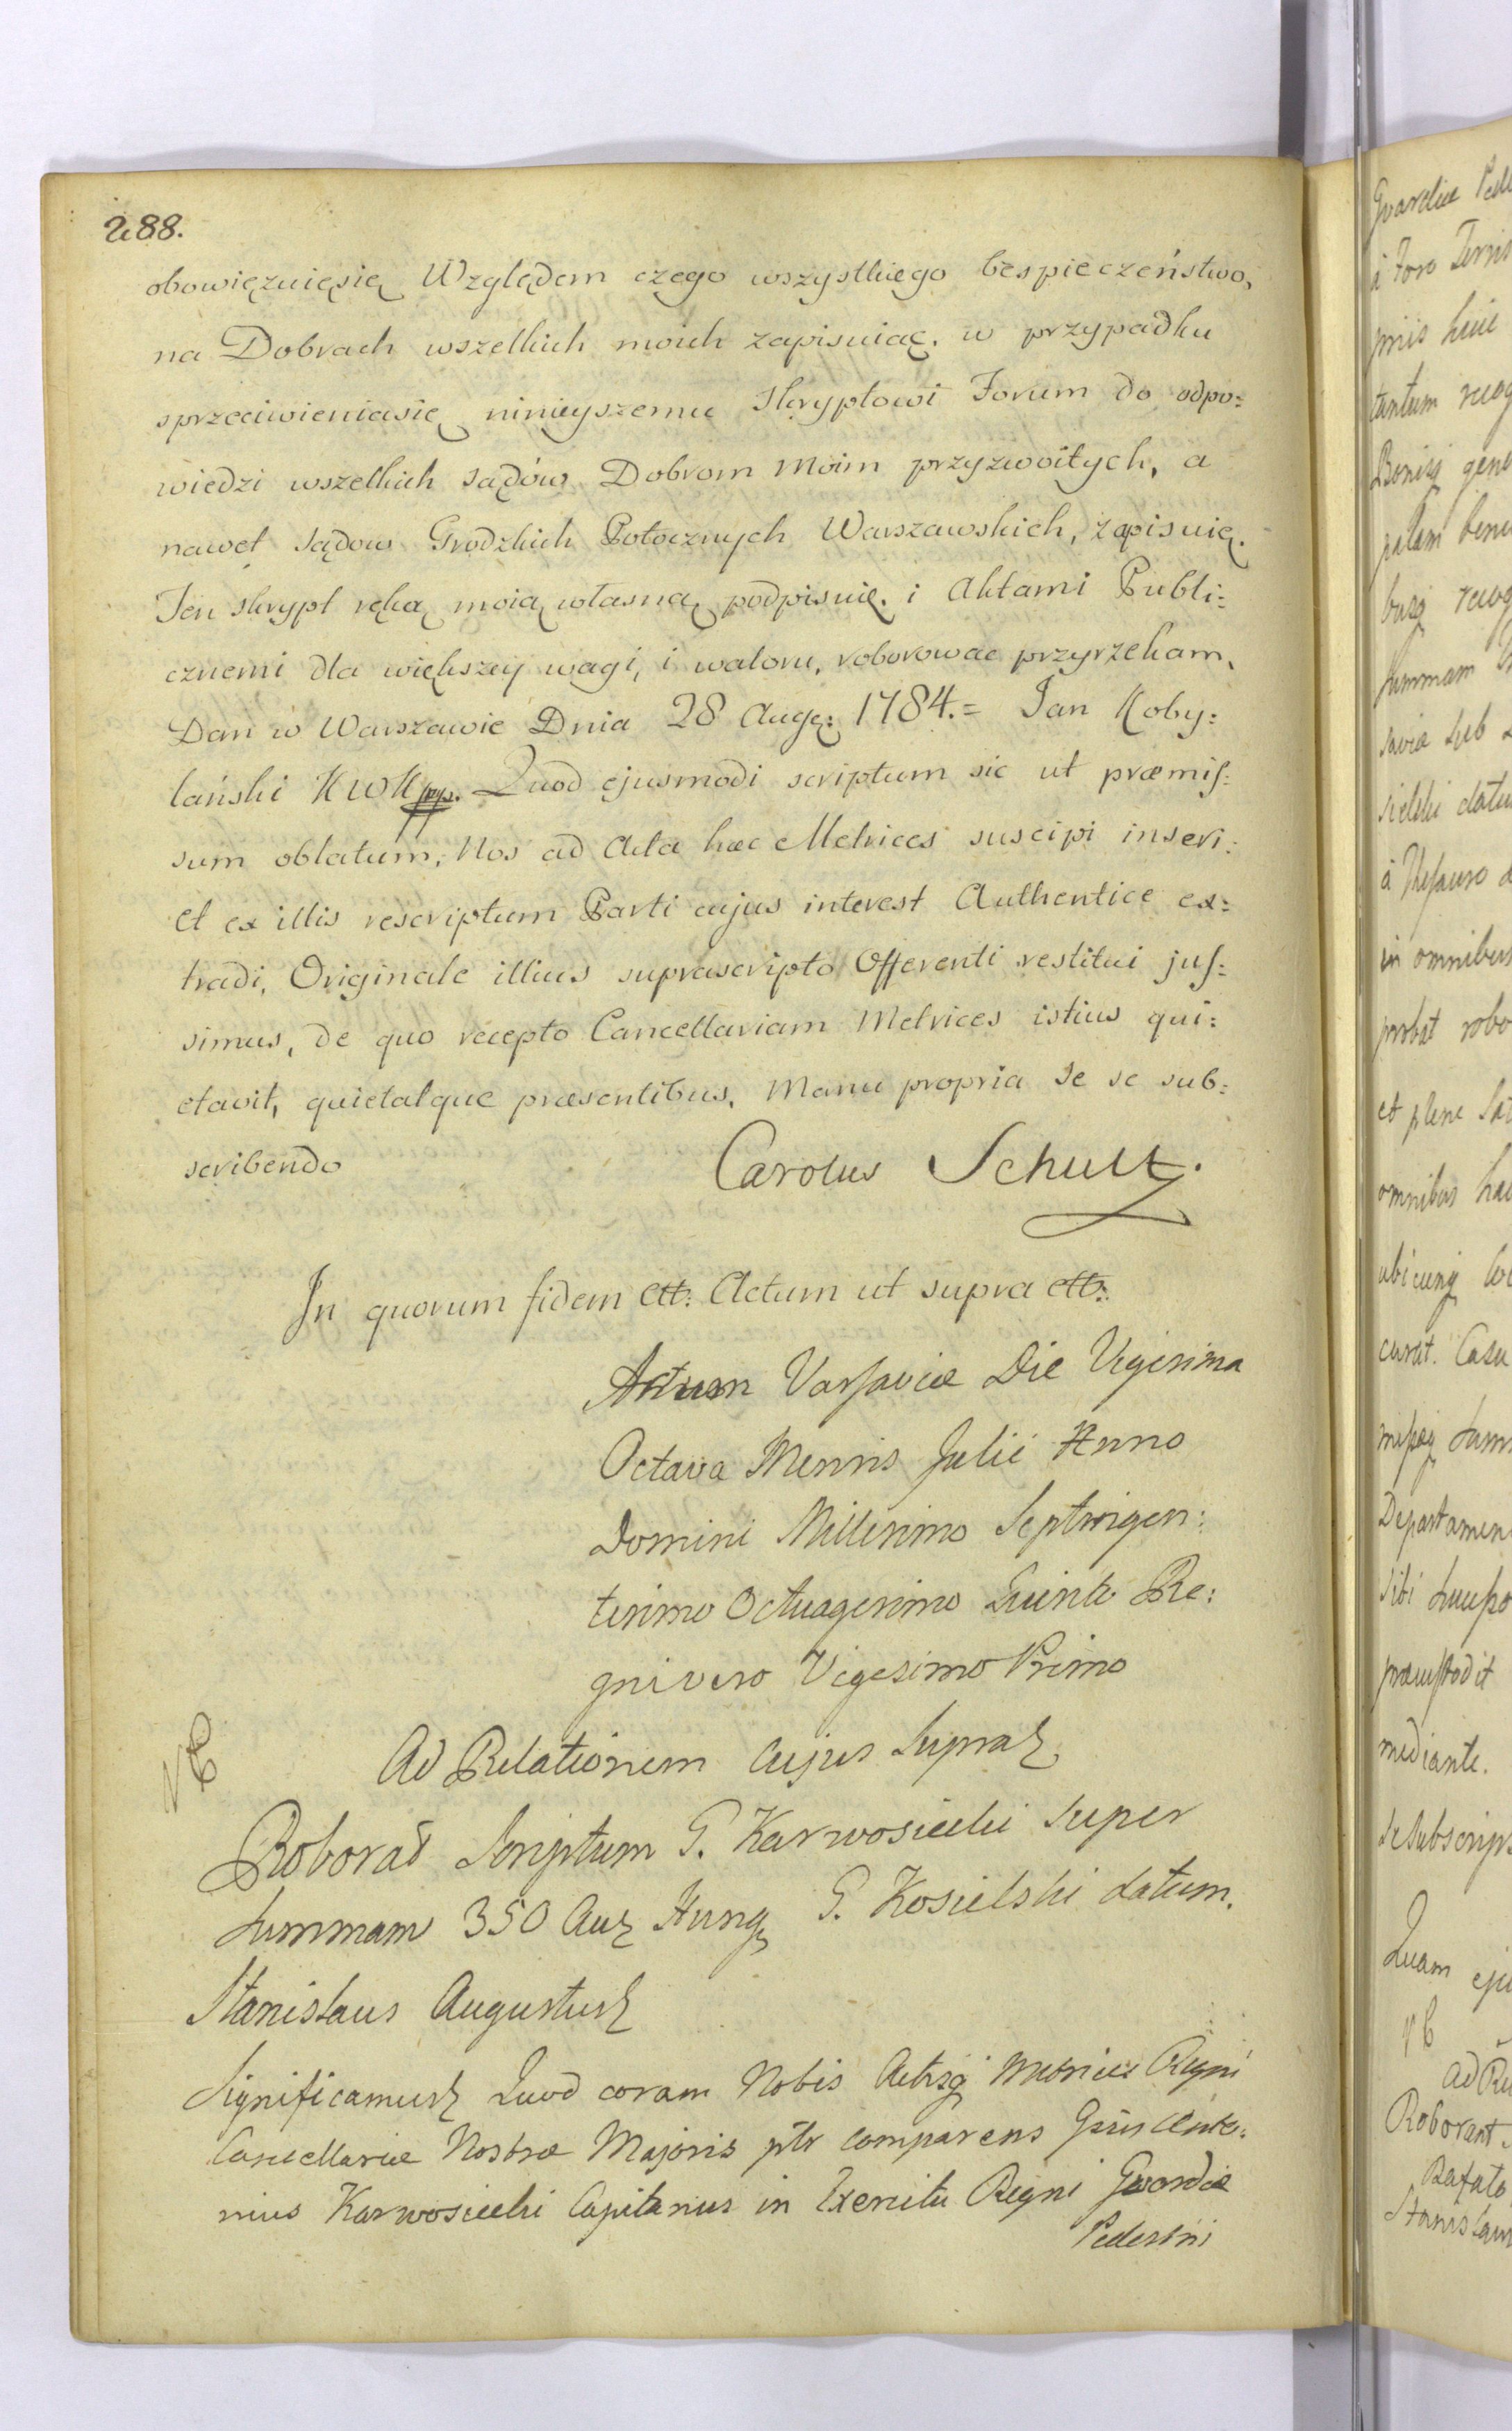 288.
obowięzuięsię Względem czego wszystkiego bespieczeństwo,
na Dobrach wszelkich moich zapisuiąc, w przypadku
sprzeciwieniasię ninieyszemu Skryptowi Forum do odpo:
wiedzi wszelkich sądów Dobrom Moim przyzwoitych, a
nawet sądow Grodzkich Potocznych Warszawskich, zapisuię.
Ten skrypt ręką moią własną podpisuię i Aktami Publi:
cznemi dla większey wagi, i waloru, roborowac przyrzekam,
Dan w Warszawie Dnia 28 Augę: 1784.= Jan Koby:
lański KWK mp. Quod ejusmodi scriptum sic ut præmis:
sum oblatum, Nos ad Acta hæc Metrices suscipi inseri:
et ex illis rescriptum Parti cujus interest Authentice ex:
tradi, Originale illius suprascripto Offerenti restitui jus:
simus, de quo recepto Cancellariam Metrices istius qui:
etavit, quietatque præsentibus, Manu propria se se sub:
scribendo
Carolus Schultz.
In quorum fidem ett: Actum ut supra ett:
Actum Varsaviæ Die Vigesima
Octava Mensis Julii Anno
Domini Millesimo Septingen:
tesimo Octuagesimo Quinto Re:
gni vero Vigesimo Primo
Ad Relationem cujus Supra
Roborat Scriptum G. Karwosiecki super
Summam 350 Aur Hung G. Kosielski datum.
Stanislaus Augustus
Significamus Quod coram Nobis Actisq Metrices Regni
Cancellariæ Nostræ Majoris ptr comparens Gsus Anto:
nius Karwosiecki Capitanus in Exercitu Regni Gwardiæ
Pedestris
Gvardiæ
à Foro
huic
tantum
gene
palam
Summam
sub
datu
à Thesauro
in omnibus
probat robo
et plene
omnibus
curat. Casu
Departamen
sibi
mediante.
Quam
Roborant
Stanislaus